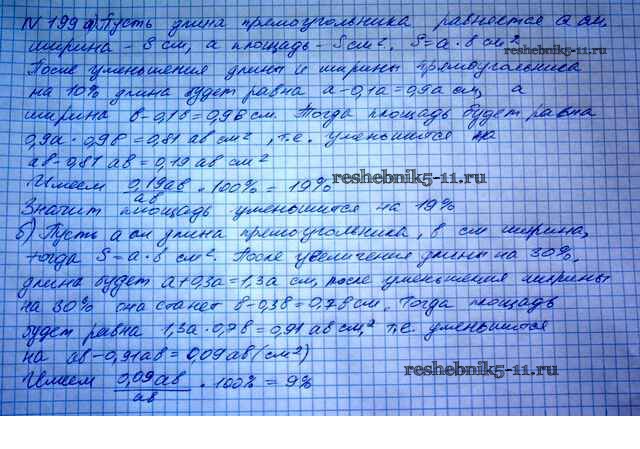 N 199 а) Пусть длина прямоугольника равняется а см,
ширина - S см, а площадь - S см². S=a·b см²
После уменьшения длины и ширины прямоугольника
на 10% длина будет равна а-0,1а=0,9а см, а
ширина в-0,1в=0,9в см. Тогда площадь будет равна
0,9а·0,9в=0,81 ав см², т.е. уменьшится на
ав-0,81 ав=0,19 ав см²
Имеем 0,19ав/ав · 100% = 19%
Значит площадь уменьшится на 19%
б) Пусть а см длина прямоугольника, в см ширина,
тогда S=а·в см². После увеличения длины на 30%,
длина будет а+0,3а=1,3а см, после уменьшения ширины
на 30% она станет в-0,3в=0,7в см. Тогда площадь
будет равна 1,3а·0,7в=0,91 ав см², т.е. уменьшится
на ав-0,91ав=0,09ав (см²)
Имеем 0,09ав/ав · 100% = 9%
reshebnik5-11.ru
reshebnik5-11.ru
reshebnik5-11.ru
reshebnik5-11.ru